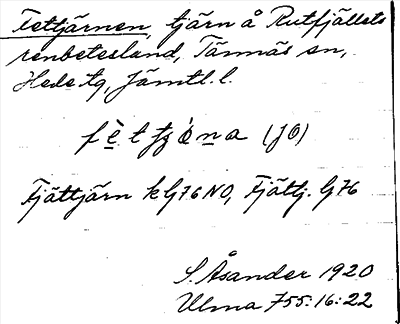 Fettjärnen, tjärn å Rutfjällets
renbetesland, Tännäs sn,
Hede tg, Jämtl. l.
(JO)
Fjättjärn k Gj76NO, Fjättj. Gj76
S. Åsander 1920
Ulma 755:16:22